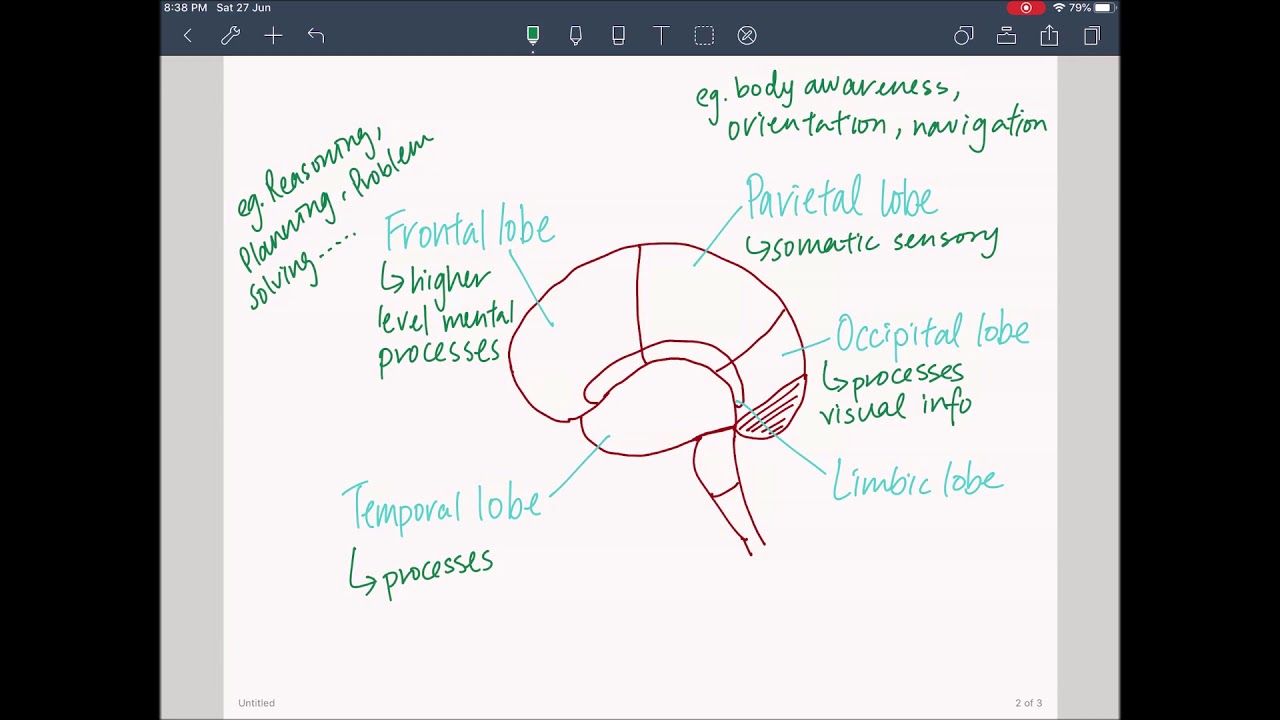 8:38 PM Sat 27 Jun
79%
eg. body awareness,
orientation, navigation
eg. Reasoning,
Planning, Problem
solving.....
Frontal lobe
↳higher
level mental
processes
Parietal lobe
↳somatic sensory
Occipital lobe
↳processes
visual info
Limbic lobe
Temporal lobe
↳processes
Untitled
2 of 3